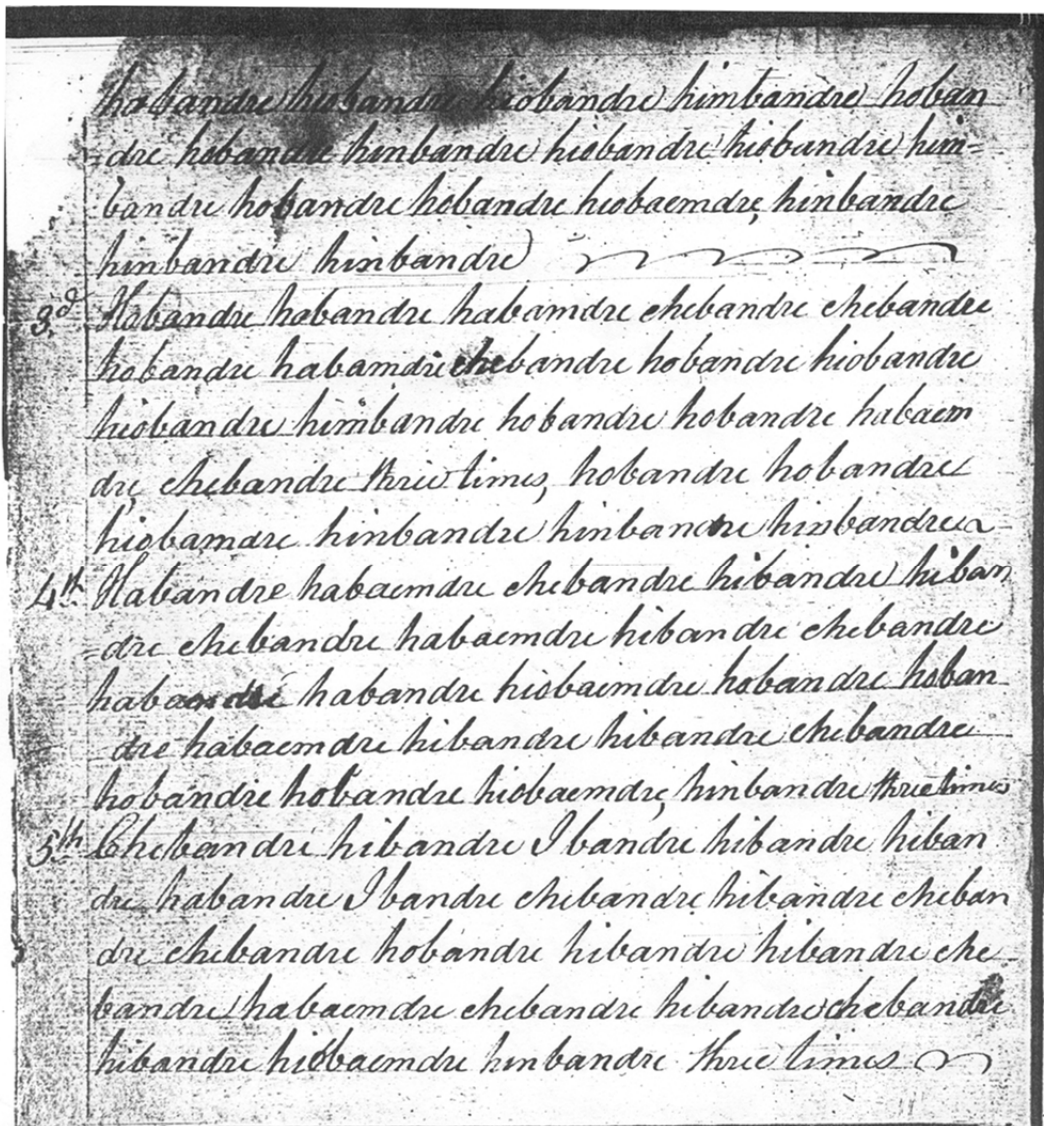 hobandre hiobandre hiobandre himbandre hoban
=dre hobandre hinbandre hiobandre hiobandre hin=
bandre hobandre hobandre hiobaemdre, hinbandre
hinbandre hinbandre
3.d Habandre habandre habamdre chebandre chebandre
hobandre habamdre chebandre hobandre hiobandre
hiobandre himbandre hobandre hobandre habaem
dre, chebandre three times, hobandre hobandre
hiobamdre hinbandre hinbandre hinbandre
4.th Habandre habaemdre chebandre hibandre hiban
=dre chebandre habaemdre hibandre chebandre
habandre habandre hiobaemdre hobandre hoban
dre habaemdre hibandre hibandre chebandre
hobandre hobandre hiobaemdre, hinbandre three times
5th Chebandre hibandre I bandre hibandre hiban
dre habandre I bandre chebandre hibandre cheban
dre chebandre hobandre hibandre hibandre che
bandre habaemdre chebandre hibandre chebandre
hibandre hiobaemdre hinbandre three times